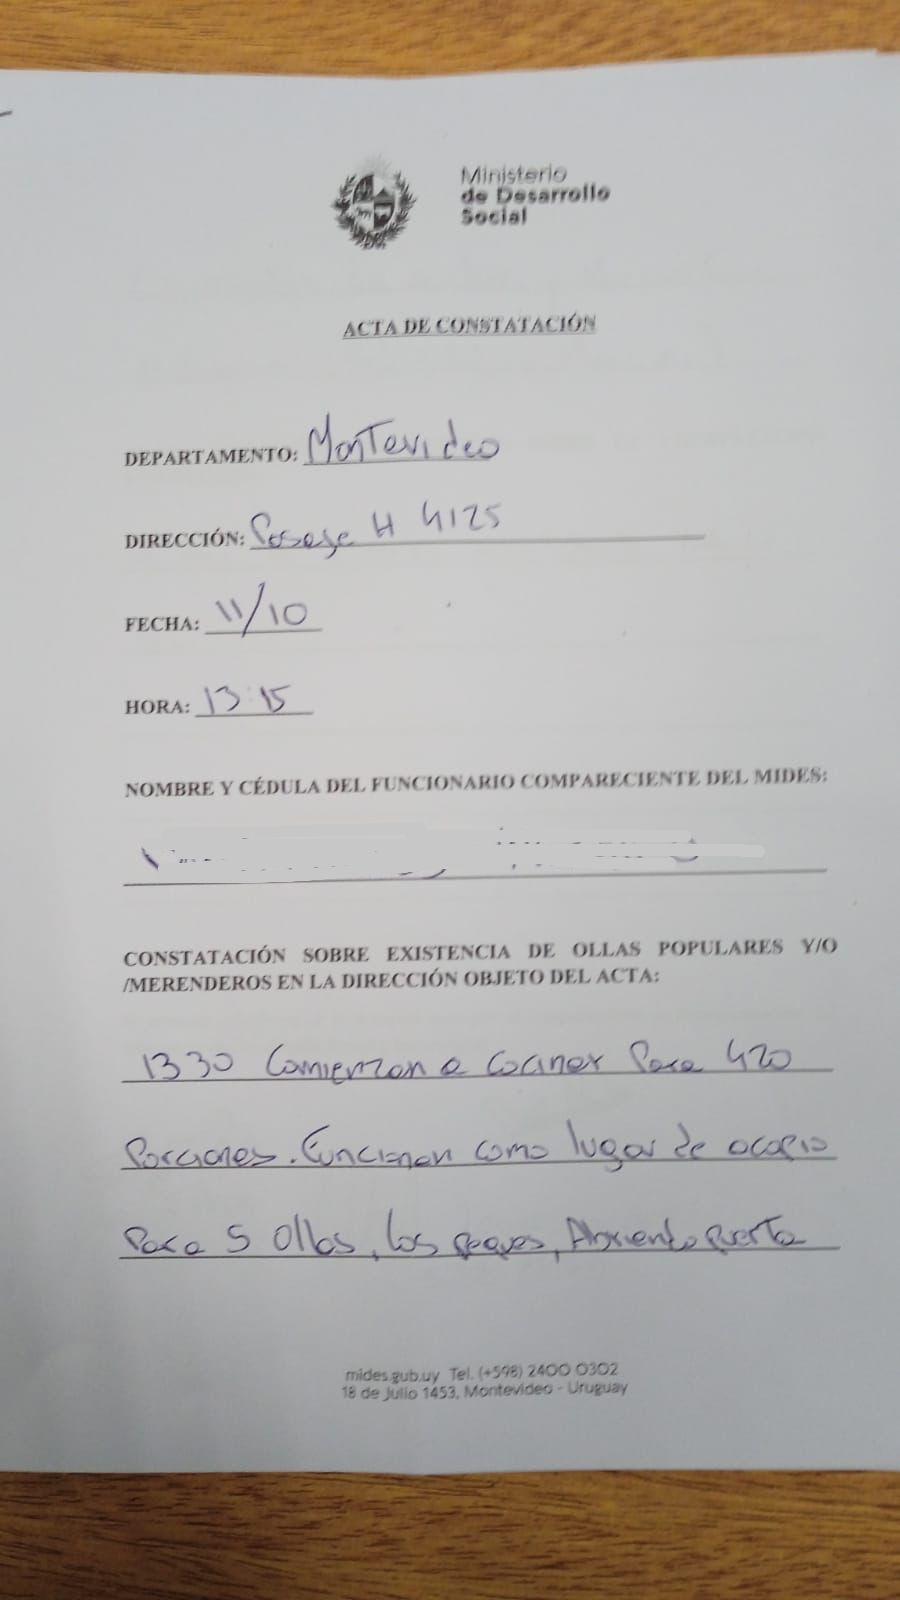 Ministerio
de Desarrollo
Social
ACTA DE CONSTATACIÓN
DEPARTAMENTO: Montevideo
DIRECCIÓN: Pasaje H 4125
FECHA: 11/10
HORA: 13:15
NOMBRE Y CÉDULA DEL FUNCIONARIO COMPARECIENTE DEL MIDES:
CONSTATACIÓN SOBRE EXISTENCIA DE OLLAS POPULARES Y/O
/MERENDEROS EN LA DIRECCIÓN OBJETO DEL ACTA:
1330 Comienzan a cocinar Para 420
Porciones. Funcionan como lugar de acopio
Para 5 Ollas, los peques, Abriendo puerta
mides.gub.uy Tel. (+598) 2400 0302
18 de Julio 1453, Montevideo - Uruguay